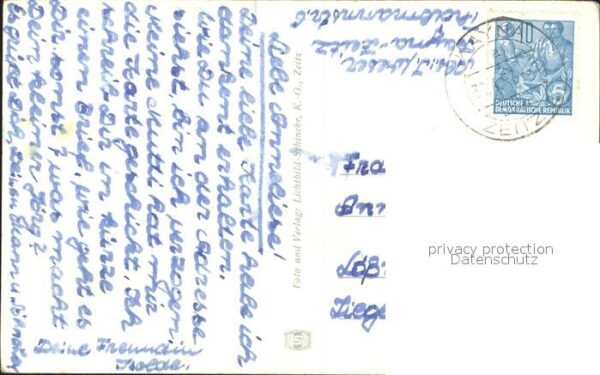 Liebe Anneliese!
Deine liebe Karte habe ich
dankend erhalten.
Wie Du an der Adresse
siehst, bin ich umgezogen.
Meine Mutti hat mir
die Karte geschickt. Ich
schreib Dir in Kürze
einen Brief, wie geht es
Dir sonst? was macht
Dein kleiner Jörg?
Es grüßt Dich, Deinen Mann u.
Deine Freundin
Foto und Verlag: Lichtbild-Schincke, K.-G., Zeitz
Zeitz
ZEITZ
DEUTSCHE
DEMOKRATISCHE REPUBLIK
Fra
Löß
privacy protection
Datenschutz